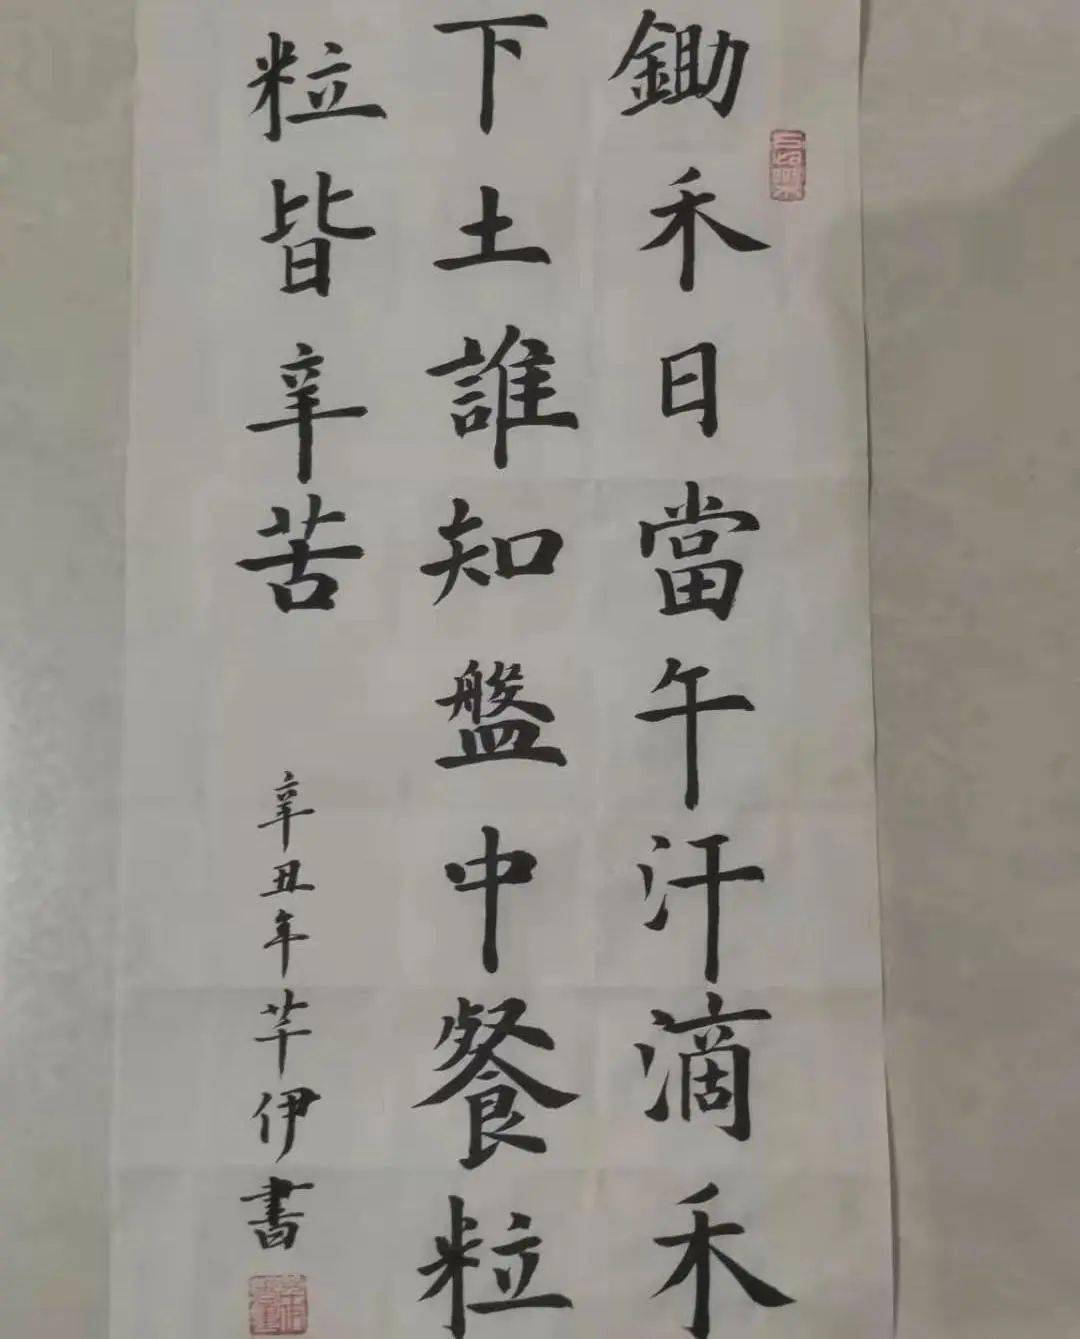 鋤禾日當午汗滴禾
下土誰知盤中餐粒
粒皆辛苦
辛丑年芊伊書